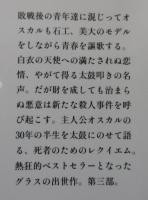 敗戦後の青年達に混じってオ
スカルも石工、美大のモデル
をしながら青春を謳歌する。
白衣の天使への満たされぬ恋
情、やがて得る太鼓叩きの名
声。だが財を成しても治まら
ぬ悪意は新たな殺人事件を呼
び起こす。主人公オスカルの
30年の半生を太鼓にのせて語
る、死者のためのレクイエム。
熱狂的ベストセラーとなった
グラスの出世作。第三部。